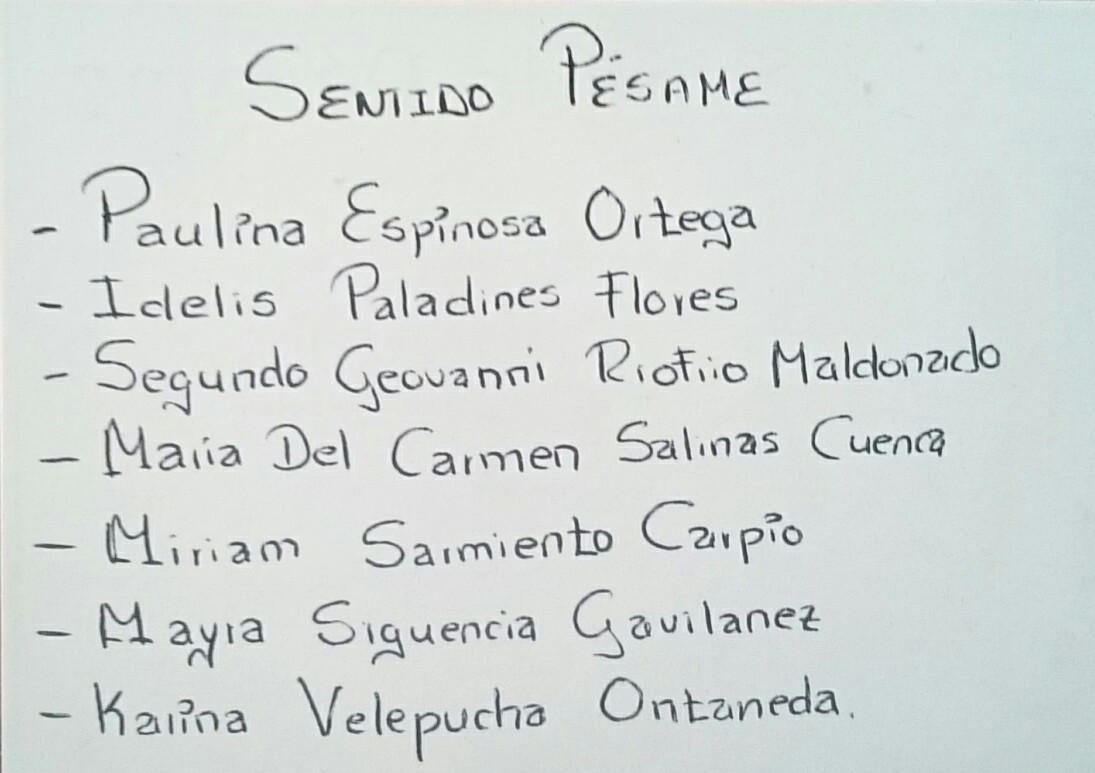 SENTIDO PÉSAME
- Paulina Espinosa Ortega
- Idelis Paladines Flores
- Segundo Geovanni Riofrio Maldonado
- Maria Del Carmen Salinas Cuenca
- Miriam Sarmiento Carpio
- Mayra Siguencia Gavilanez
- Karina Velepucha Ontaneda.